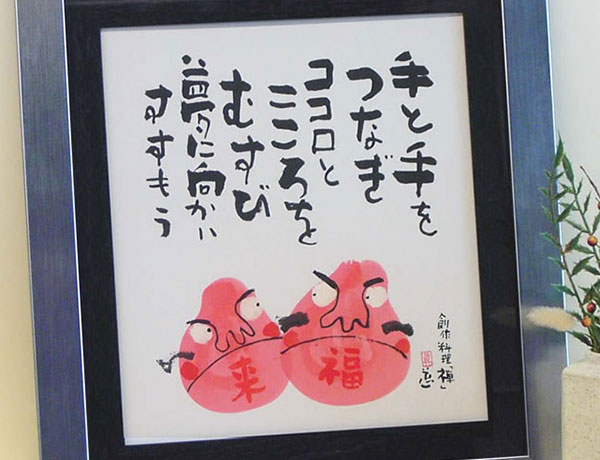 手と手を
つなぎ
ココロと
こころを
むすび
夢に向かい
すすもう
福
来
創作料理「禅」